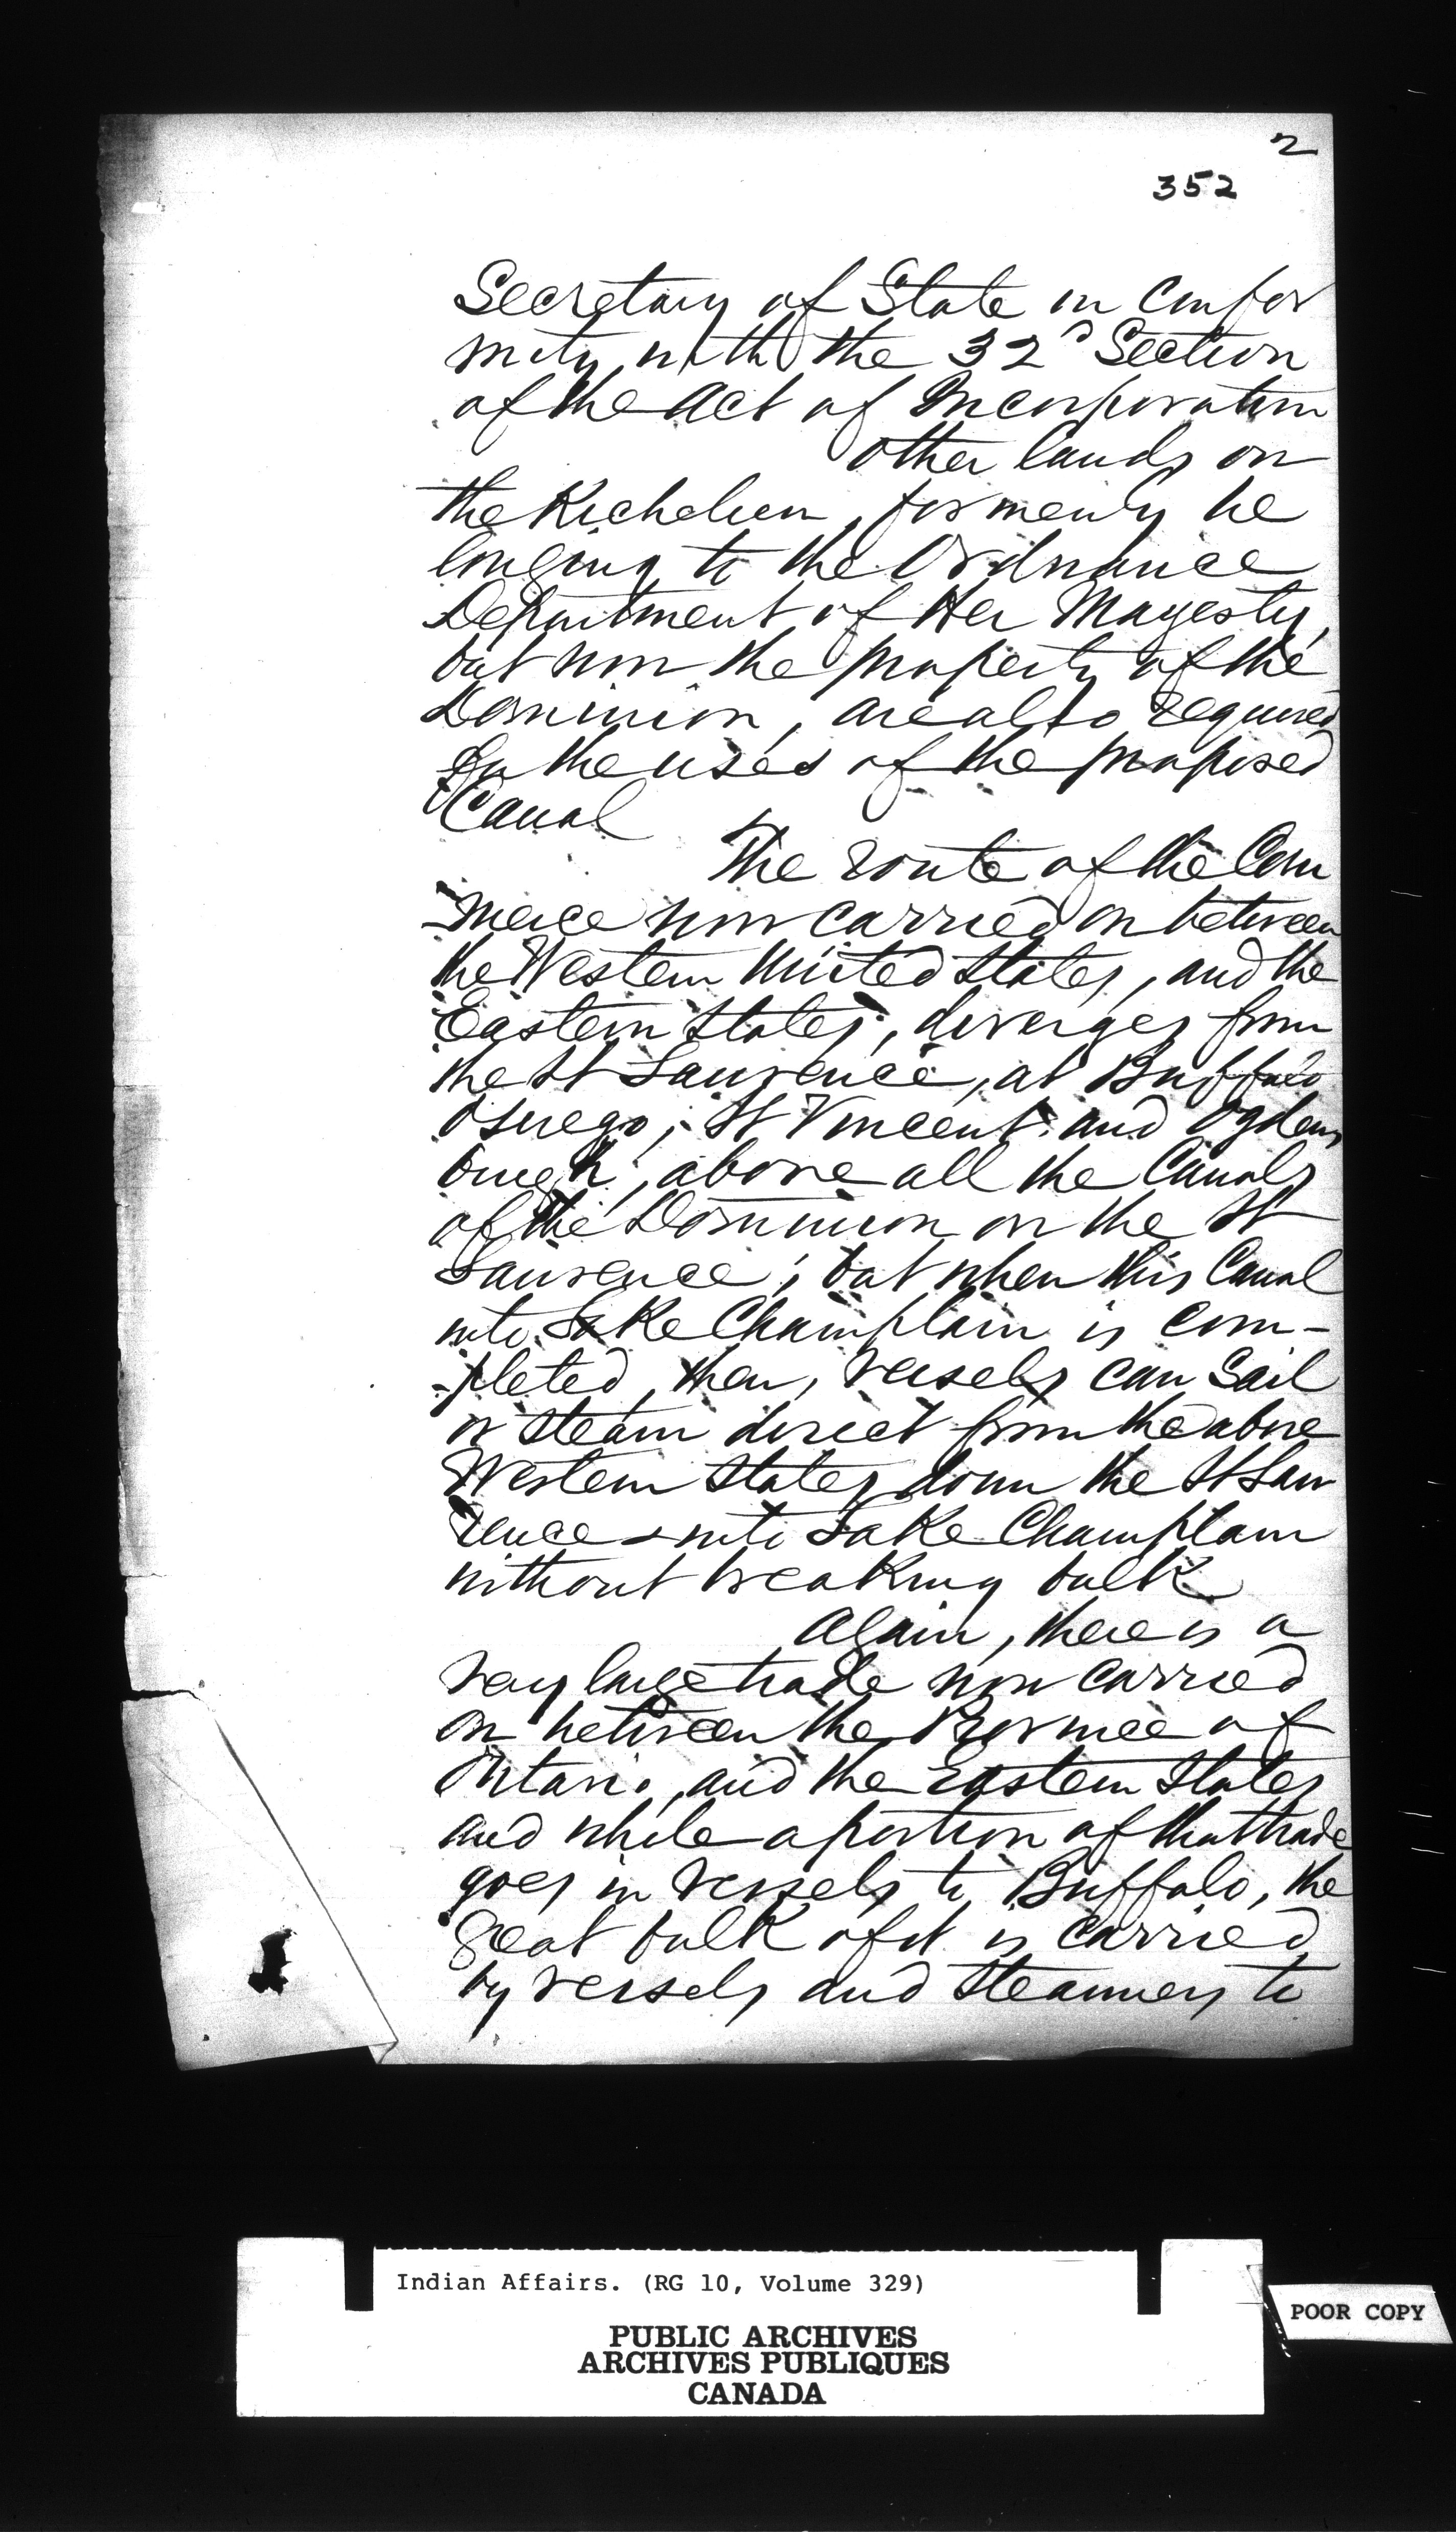 2
352
Secretary of State in confor
mity with the 32d Section
of the Act of Incorporation
Other lands on
the Richelieu, formerly be
longing to the Ordnance
Department of Her Majesty,
but now the property of the
Dominion, are also required
for the uses of the proposed
Canal
The route of the Com
-merce now carried on between
the Western United States, and the
Eastern States, diverges from
the St Lawrence, at Buffalo
Oswego, St Vincent and Ogdens
burgh, above all the Canals
of the Dominion on the St
Lawrence; but when this Canal
into Lake Champlain is com-
-pleted, then, vessels can sail
or steam direct from the above
Western States down the St Law
rence & into Lake Champlain
without breaking bulk
Again, there is a
very large trade now carried
on between the Province of
Ontario, and the Eastern States
and while a portion of that trade
goes in vessels to Buffalo, the
great bulk of it is carried
by vessels and steamers to
Indian Affairs. (RG 10, Volume 329)
PUBLIC ARCHIVES
ARCHIVES PUBLIQUES
CANADA
POOR COPY